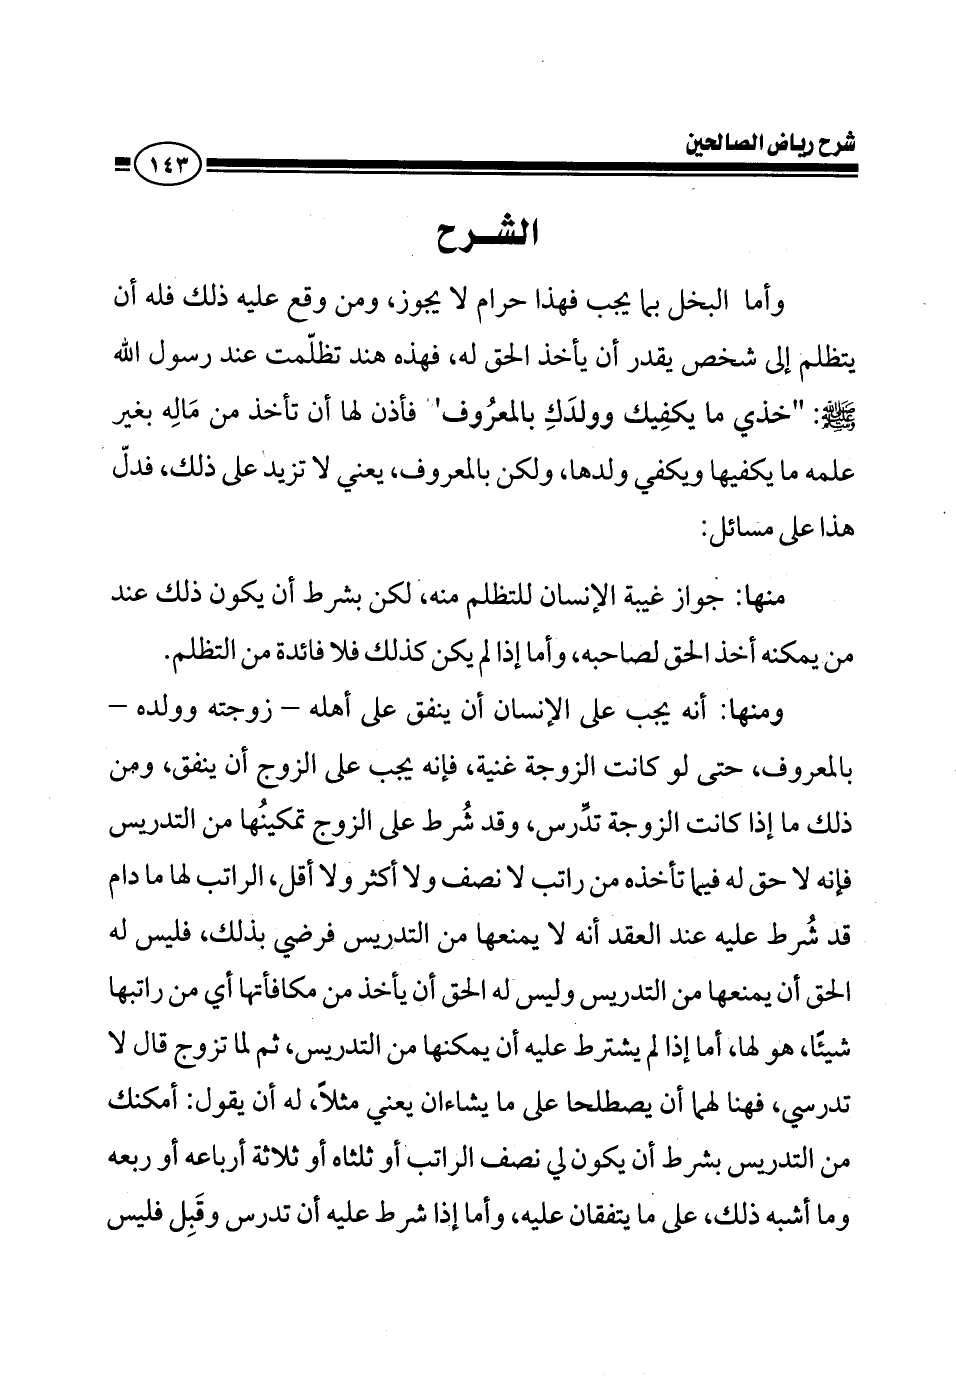 شرح رياض الصالحين
١٤٣
الشــرح
وأما البخل بما يجب فهذا حرام لا يجوز، ومن وقع عليه ذلك فله أن
يتظلم إلى شخص يقدر أن يأخذ الحق له، فهذه هند تظلّمت عند رسول الله
ﷺ: "خذي ما يكفِيك وولدَكِ بالمعرُوف" فأذن لها أن تأخذ من مَالِه بغير
علمه ما يكفيها ويكفي ولدها، ولكن بالمعروف، يعني لا تزيد على ذلك، فدلّ
هذا على مسائل:
منها: جواز غيبة الإنسان للتظلم منه، لكن بشرط أن يكون ذلك عند
من يمكنه أخذ الحق لصاحبه، وأما إذا لم يكن كذلك فلا فائدة من التظلم.
ومنها: أنه يجب على الإنسان أن ينفق على أهله – زوجته وولده –
بالمعروف، حتى لو كانت الزوجة غنية، فإنه يجب على الزوج أن ينفق، ومن
ذلك ما إذا كانت الزوجة تدِّرس، وقد شُرط على الزوج تمكينُها من التدريس
فإنه لا حق له فيما تأخذه من راتب لا نصف ولا أكثر ولا أقل، الراتب لها ما دام
قد شُرط عليه عند العقد أنه لا يمنعها من التدريس فرضي بذلك، فليس له
الحق أن يمنعها من التدريس وليس له الحق أن يأخذ من مكافأتها أي من راتبها
شيئًا، هو لها، أما إذا لم يشترط عليه أن يمكنها من التدريس، ثم لما تزوج قال لا
تدرسي، فهنا لهما أن يصطلحا على ما يشاءان يعني مثلاً، له أن يقول: أمكنك
من التدريس بشرط أن يكون لي نصف الراتب أو ثلثاه أو ثلاثة أرباعه أو ربعه
وما أشبه ذلك، على ما يتفقان عليه، وأما إذا شرط عليه أن تدرس وقَبِل فليس